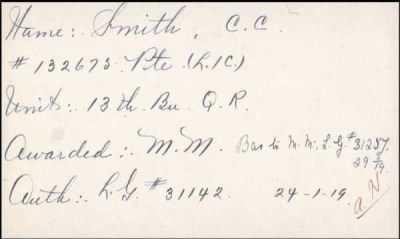 Name: Smith, C.C.
# 132673 Pte (L/C)
Unit: 13th. Bn Q.R.
Awarded: M.M. Bar to M.M. L.G. # 31257.
29/3/19.
Auth: L.G. # 31142. 24-1-19.
a.N